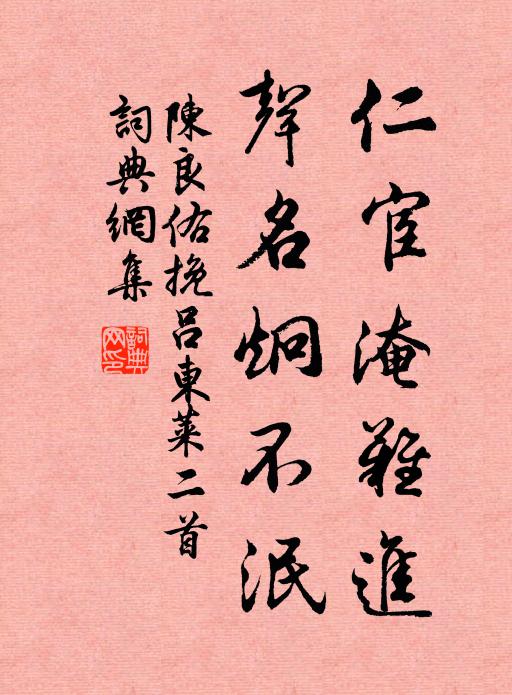 仁宦淹難進
聲名炯不泯
陳良佑挽呂東萊二首
詞典網集
詞典網印